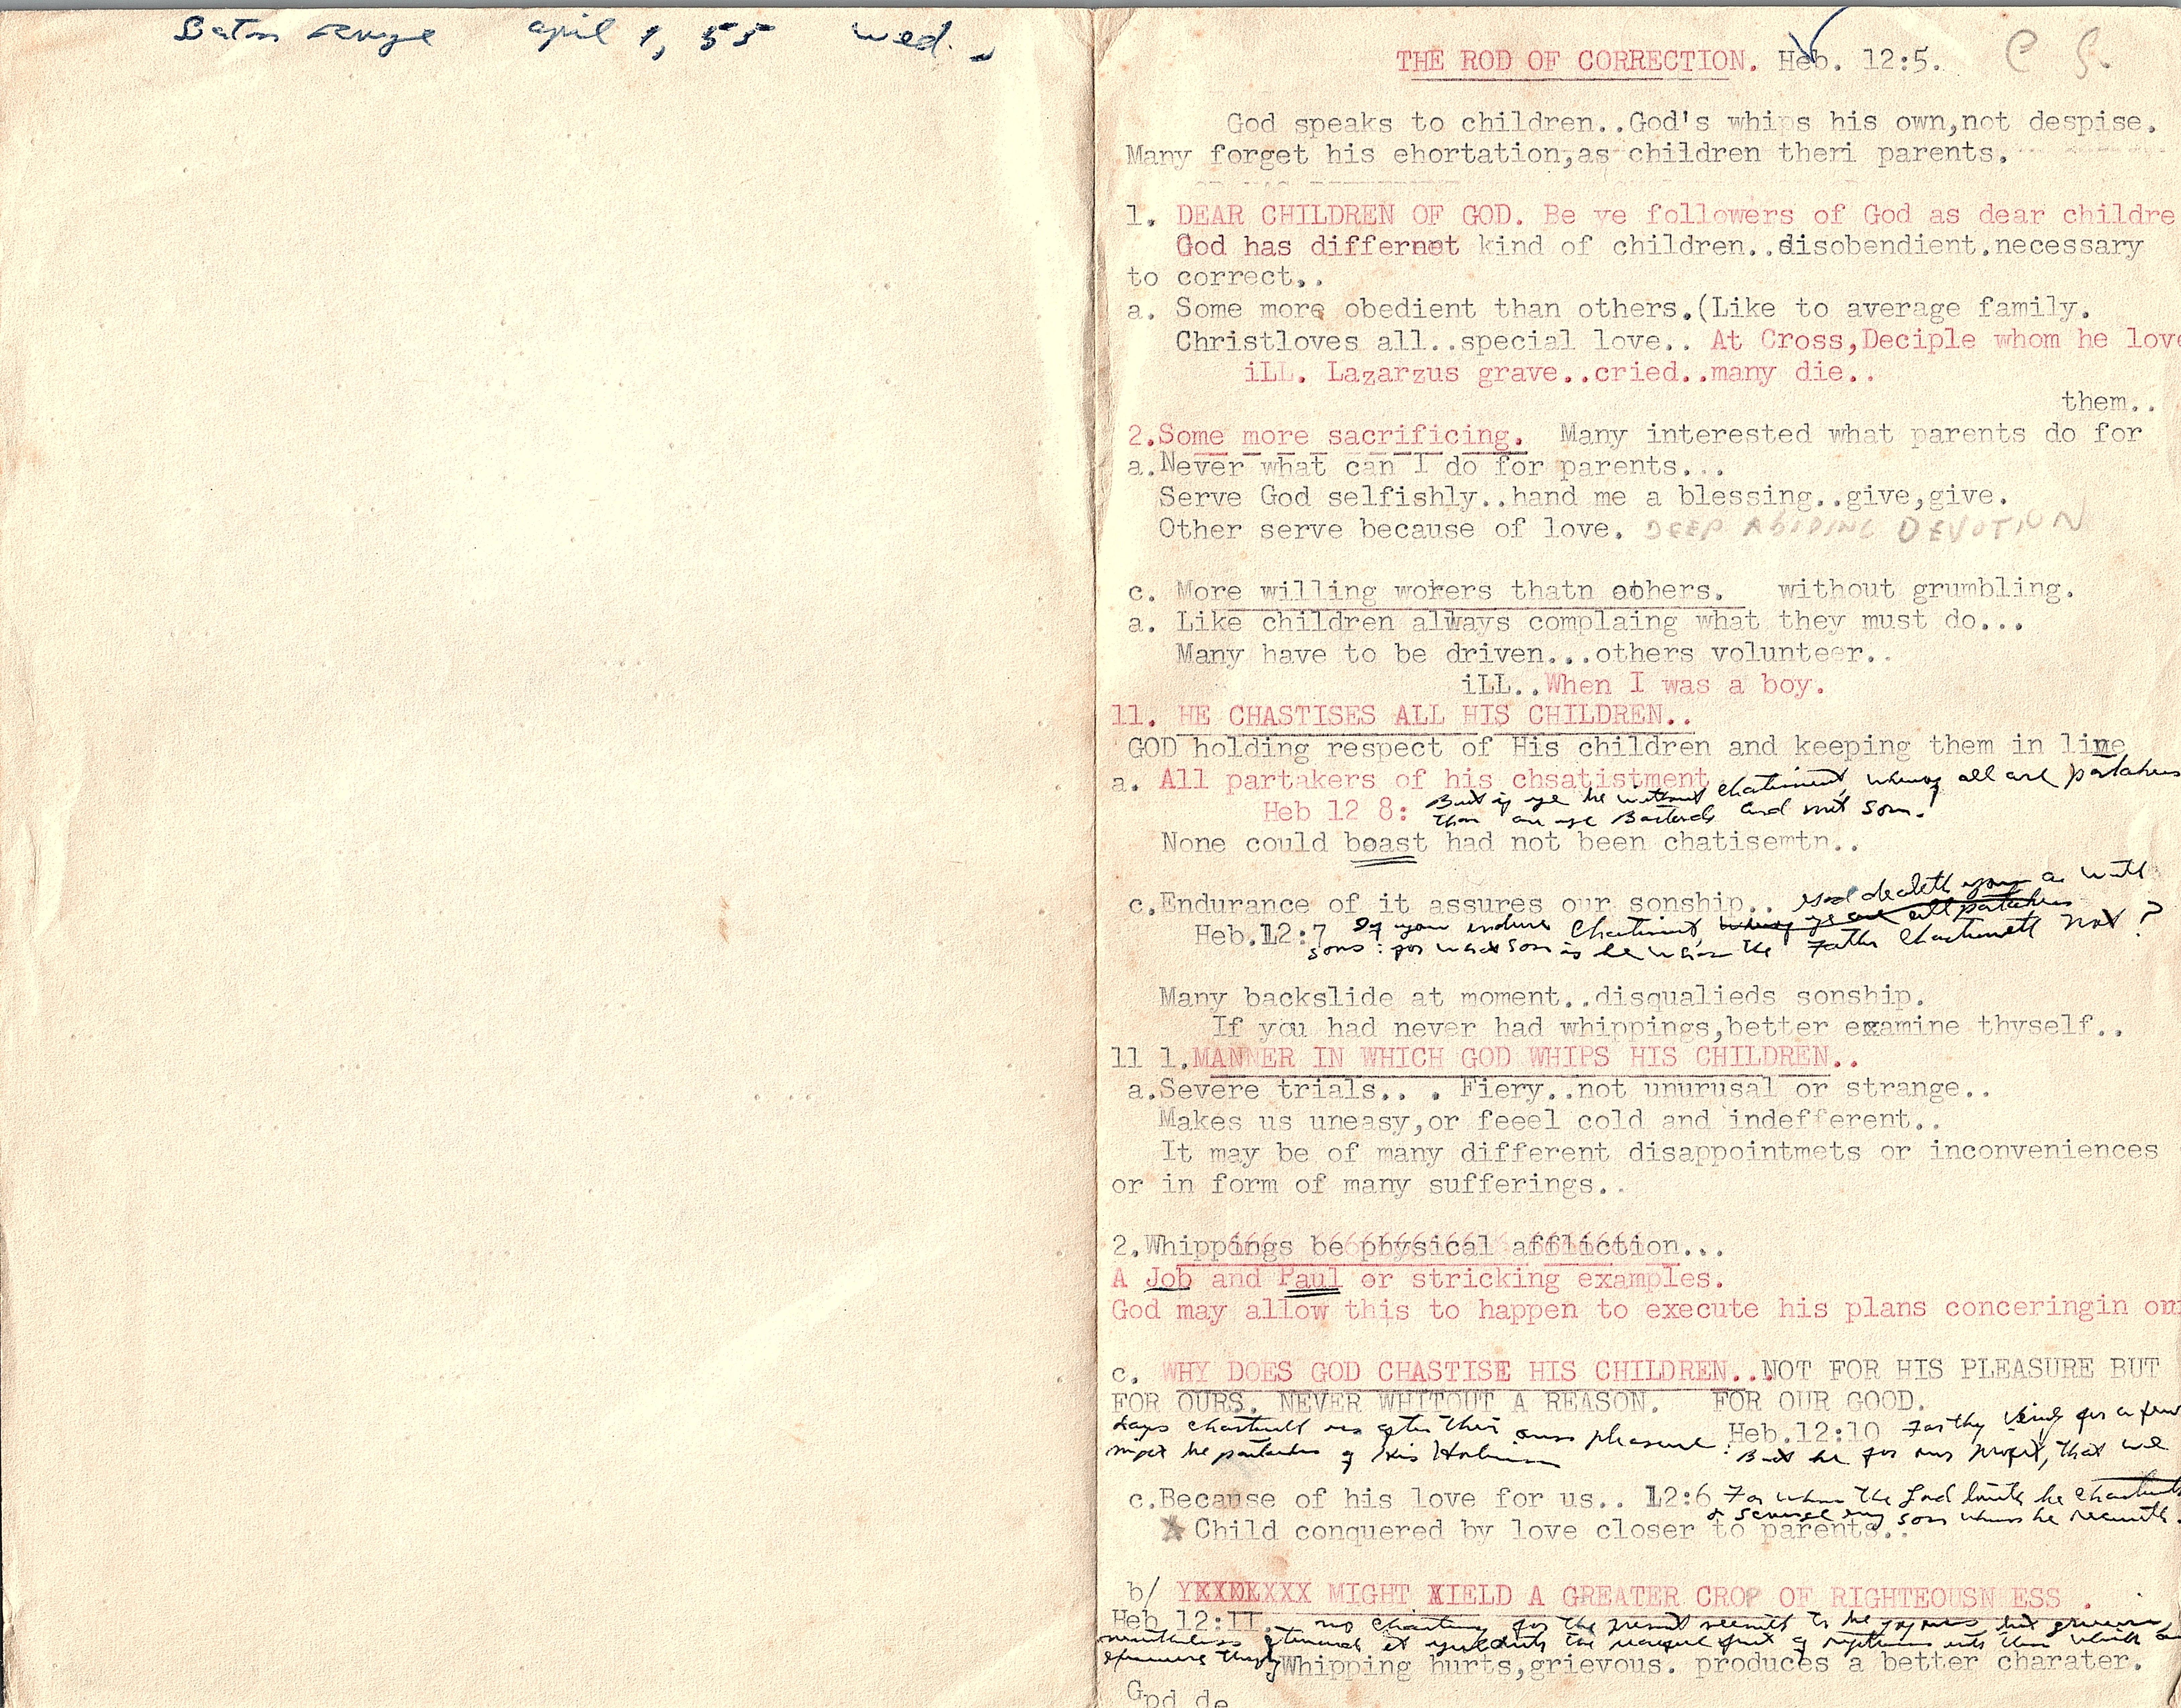 Baton rouge april 1, 55 wed.
THE ROD OF CORRECTION. Heb. 12:5. C S.
God speaks to children..God's whips his own,not despise.
Many forget his ehortation,as children theri parents.
1. DEAR CHILDREN OF GOD. Be ye followers of God as dear childre
God has differnet kind of children..disobendient.necessary
to correct,.
a. Some more obedient than others.(Like to average family.
Christloves all..special love.. At Cross,Deciple whom he love
iLL. Lazarzus grave..cried..many die..
them..
2.Some more sacrificing. Many interested what parents do for
a.Never what can I do for parents...
Serve God selfishly..hand me a blessing..give,give.
Other serve because of love. DEEP ABIDING DEVOTION
c. More willing wokers thatn others. without grumbling.
a. Like children always complaing what they must do...
Many have to be driven...others volunteer..
iLL..When I was a boy.
11. HE CHASTISES ALL HIS CHILDREN..
GOD holding respect of His children and keeping them in line
a. All partakers of his chsatistment. chatisment, whereof all are partakers
Heb 12 8: But if ye be without
then are ye Bastards and not sons!
None could boast had not been chatisemtn..
c.Endurance of it assures our sonship.. God dealeth you as with
Heb.12:7 If you endure Chastisment, whereof ye are all partakers
sons: for what son is he whom the Father Chastneth not?
Many backslide at moment..disqualieds sonship.
If you had never had whippings,better examine thyself..
11 1.MANNER IN WHICH GOD WHIPS HIS CHILDREN..
a.Severe trials.. . Fiery..not unurusal or strange..
Makes us uneasy,or feeel cold and indefferent..
It may be of many different disappointmets or inconveniences
or in form of many sufferings..
2.Whippings be physical affliction...
A Job and Paul or stricking examples.
God may allow this to happen to execute his plans conceringin our
c. WHY DOES GOD CHASTISE HIS CHILDREN..NOT FOR HIS PLEASURE BUT
FOR OURS. NEVER WHITOUT A REASON. FOR OUR GOOD.
Heb.12:10 For they verily for a few
days chastned us after their own pleasure: But he for our profit, that we
might be partakers of His Holiness
c.Because of his love for us.. 12:6 For whom the Lord loveth he chasteneth
& scourge every son whom he receiveth.
Child conquered by love closer to parents..
b/ YXXXLXXX MIGHT YIELD A GREATER CROP OF RIGHTEOUSN ESS .
Heb 12:11. no chastning for the present seemeth to be joyous, but grievous,
nevertheless afterwards it yieldeth the peaceful fruit of righteousness unto them which are
Whipping hurts,grievous. produces a better charater.
Gpd de